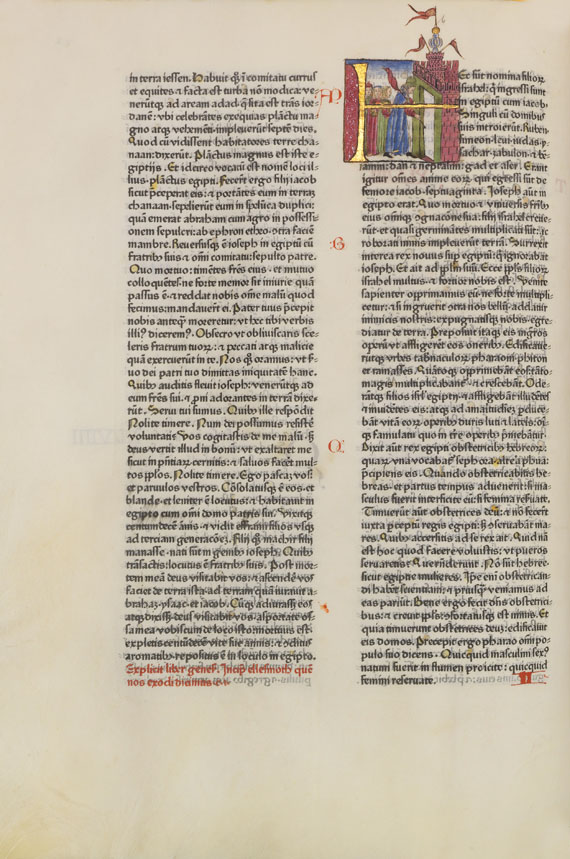 in terra iessen. Habuit qȝ i comitatu currus
et equites ⁊ facta est turba nō modica: ve-
nerūtqȝ ad aream adad qȝ sita est trās ior-
danē: vbi celebrātes exequias plāctu ma-
gno atqȝ vehemēti impleverūt septē dies.
Quod cū vidissent habitatores terre cha-
naan: dixerūt. Plāctus magnus est iste e-
giptijs. Et idcirco vocati est nomē loci il-
lius plāctus egipti. Fecerūt ergo filij iacob
sicut p̄ceperat eis: ⁊ portātes eum in terrā
chanaan: sepelierūt eum in spelūca duplici:
quā emerat abraham cum agro in possessi-
onem sepulcri: ab ephron etheo ↄtra faciē
mambre. Reversusqȝ ē ioseph in egiptū cū
fratribȝ suis ⁊ om̄i comitatu: sepulto patre.
Quo mortuo: timētes fr̄es eius ⁊ mutuo
colloquētes: ne forte memor sit iniurie quā
passus ē: ⁊ reddat nobis om̄e malū quod
fecimus: mandaverūt ei. Pater tuus p̄cepit
nobis anteqȝ moreretur: vt hec tibi verbis
illiȝ diceremȝ. Obsecro vt obliviscaris sce-
leris fratrum tuorȝ: ⁊ peccati atqȝ malicie
quā exercuerūt in te. Nos qȝ oramus: vt s̄-
vo dei patri tuo dimittas iniquitatē hanc.
Quibȝ auditis flevit ioseph: venerūtqȝ ad
eum fr̄es sui. ⁊ proni adorantes in terrā dixe-
rūt. Servi tui sumus. Quibȝ ille respōdit
Nolite timere. Num dei possumus resistē
voluntati? Vos cogitastis de me malū: sȝ
deus vertit illud in bonū: vt exaltaret me
sicut in p̄ntiarȝ cernitis: ⁊ salvos facēt mul-
tos pp̄los. Nolite timere. Ego pascā vos:
et parvulos vestros. Cōsolatusqȝ ē eos: et
blande et leniter ē locutus: ⁊ habitavit in
egipto cum om̄i domo patris sui. Vixitqȝ
centum decē annis: ⁊ vidit effraim filios vsqȝ
ad terciam generacōeȝ. Filij qȝ machir filij
manasse nati sūt in genibȝ ioseph. Quibȝ
trāsactis: locutus ē fratribȝ suis. Post mor-
tem meā deus visitabit vos: ⁊ ascendē vos
faciet de terra ista ad terram quā iuravit a-
brahaȝ ysaac et iacob. Cūqȝ adiurasset eos
atqȝ dixisset: deus visitabit vos: asportate os-
sa mea vobiscum de loco isto: mortuus est
expletis centū decē vite sue annis: ⁊ cōditus
aromatibȝ: repositus ē in loculo in egipto.
Explicit liber genesȝ. Incip ellesmoth que
nos exodū dicimus
Ec sūt nomina filiorȝ
israhel: qȝ ingressi sunt
in egiptū cum iacob.
Singuli cū domibus
suis introierūt. Ruben.
simeon. leui. iudas. y-
sachar. zabulon ⁊ be-
iamin: dan ⁊ neptalim: gad et aser. Erant
igitur om̄es anime eorȝ qui egressi sūt de
femore iacob: septuaginta. Ioseph aūt in
egipto erat. Quo mortuo ⁊ vniversis fribȝ
eius om̄iqȝ cognacōne sua: filij israhel creve-
rūt: et quasi germinātes multiplicati sūt: ac
roborati nimis impleverūt terrā. Surrexit
interea rex novus sup egiptū: qȝ ignorabat
ioseph. Et ait ad pp̄lm suū. Ecce pp̄ls filiorȝ
israhel multus ⁊ fortior nobis est. Venite
sapienter opprimamus eū: ne forte multipli-
cetur: ⁊ si ingruerit ↄtra nos bellū: addat̄
inimicis nostris: expugnatisqȝ nobis egre-
diatur de terra. Preposuit itaqȝ eis mgr̄os
operū: vt affligerēt eos oneribȝ. Edificave-
rūtqȝ vrbes tabnaculoȝ pharaoni: phiton
et ramasses. Quātoqȝ opprimebāt eos: tāto
magis multiplicabant̄ ⁊ crescebāt. Ode-
rātqȝ filios isrl̄ egiptij: ⁊ affligebāt illudētes
⁊ invidētes eis: atqȝ ad amaritudinē pduce-
bāt vitā eorȝ operibȝ duris luti ⁊ lateris: oi-
qȝ famulatu quo in tr̄e operibȝ p̄mebāt̄.
Dixit aūt rex egipti obstetricibȝ hebreorȝ:
quarȝ vna vocabat̄ sephora: altera phua:
p̄cipiens eis. Quando obstetricabitis he-
breas: et partus tempus advenerit: si ma-
sculus fuerit interficite eū: si femina reservate.
Timuerūt aūt obstetrices deū: ⁊ nō fecerūt
iuxta p̄ceptū regis egipti: sȝ ↄservabāt ma-
res. Quibȝ accersitis ad se rex ait. Quid nā
est hoc quod facere volustis: vt pueros
servaretis? Que rn̄derunt. Nō sūt hebree:
sicut egiptie mulieres. Ip̄e eni obstetrican-
di habēt scientiam: ⁊ priusqȝ veniamus ad
eas pariūt. Bene ergo fecit dn̄s obstetrici-
bus: ⁊ crevit pp̄ls: ↄfortatusqȝ est nimis. Et
quia timuerunt obstetrices deuȝ: edificavit
eis domos. Precepit ergo pharao om̄i po-
pulo suo dicens. Quicquid masculini sexȝ
natum fuerit in flumen proicite: quicquid
feminini reservate.